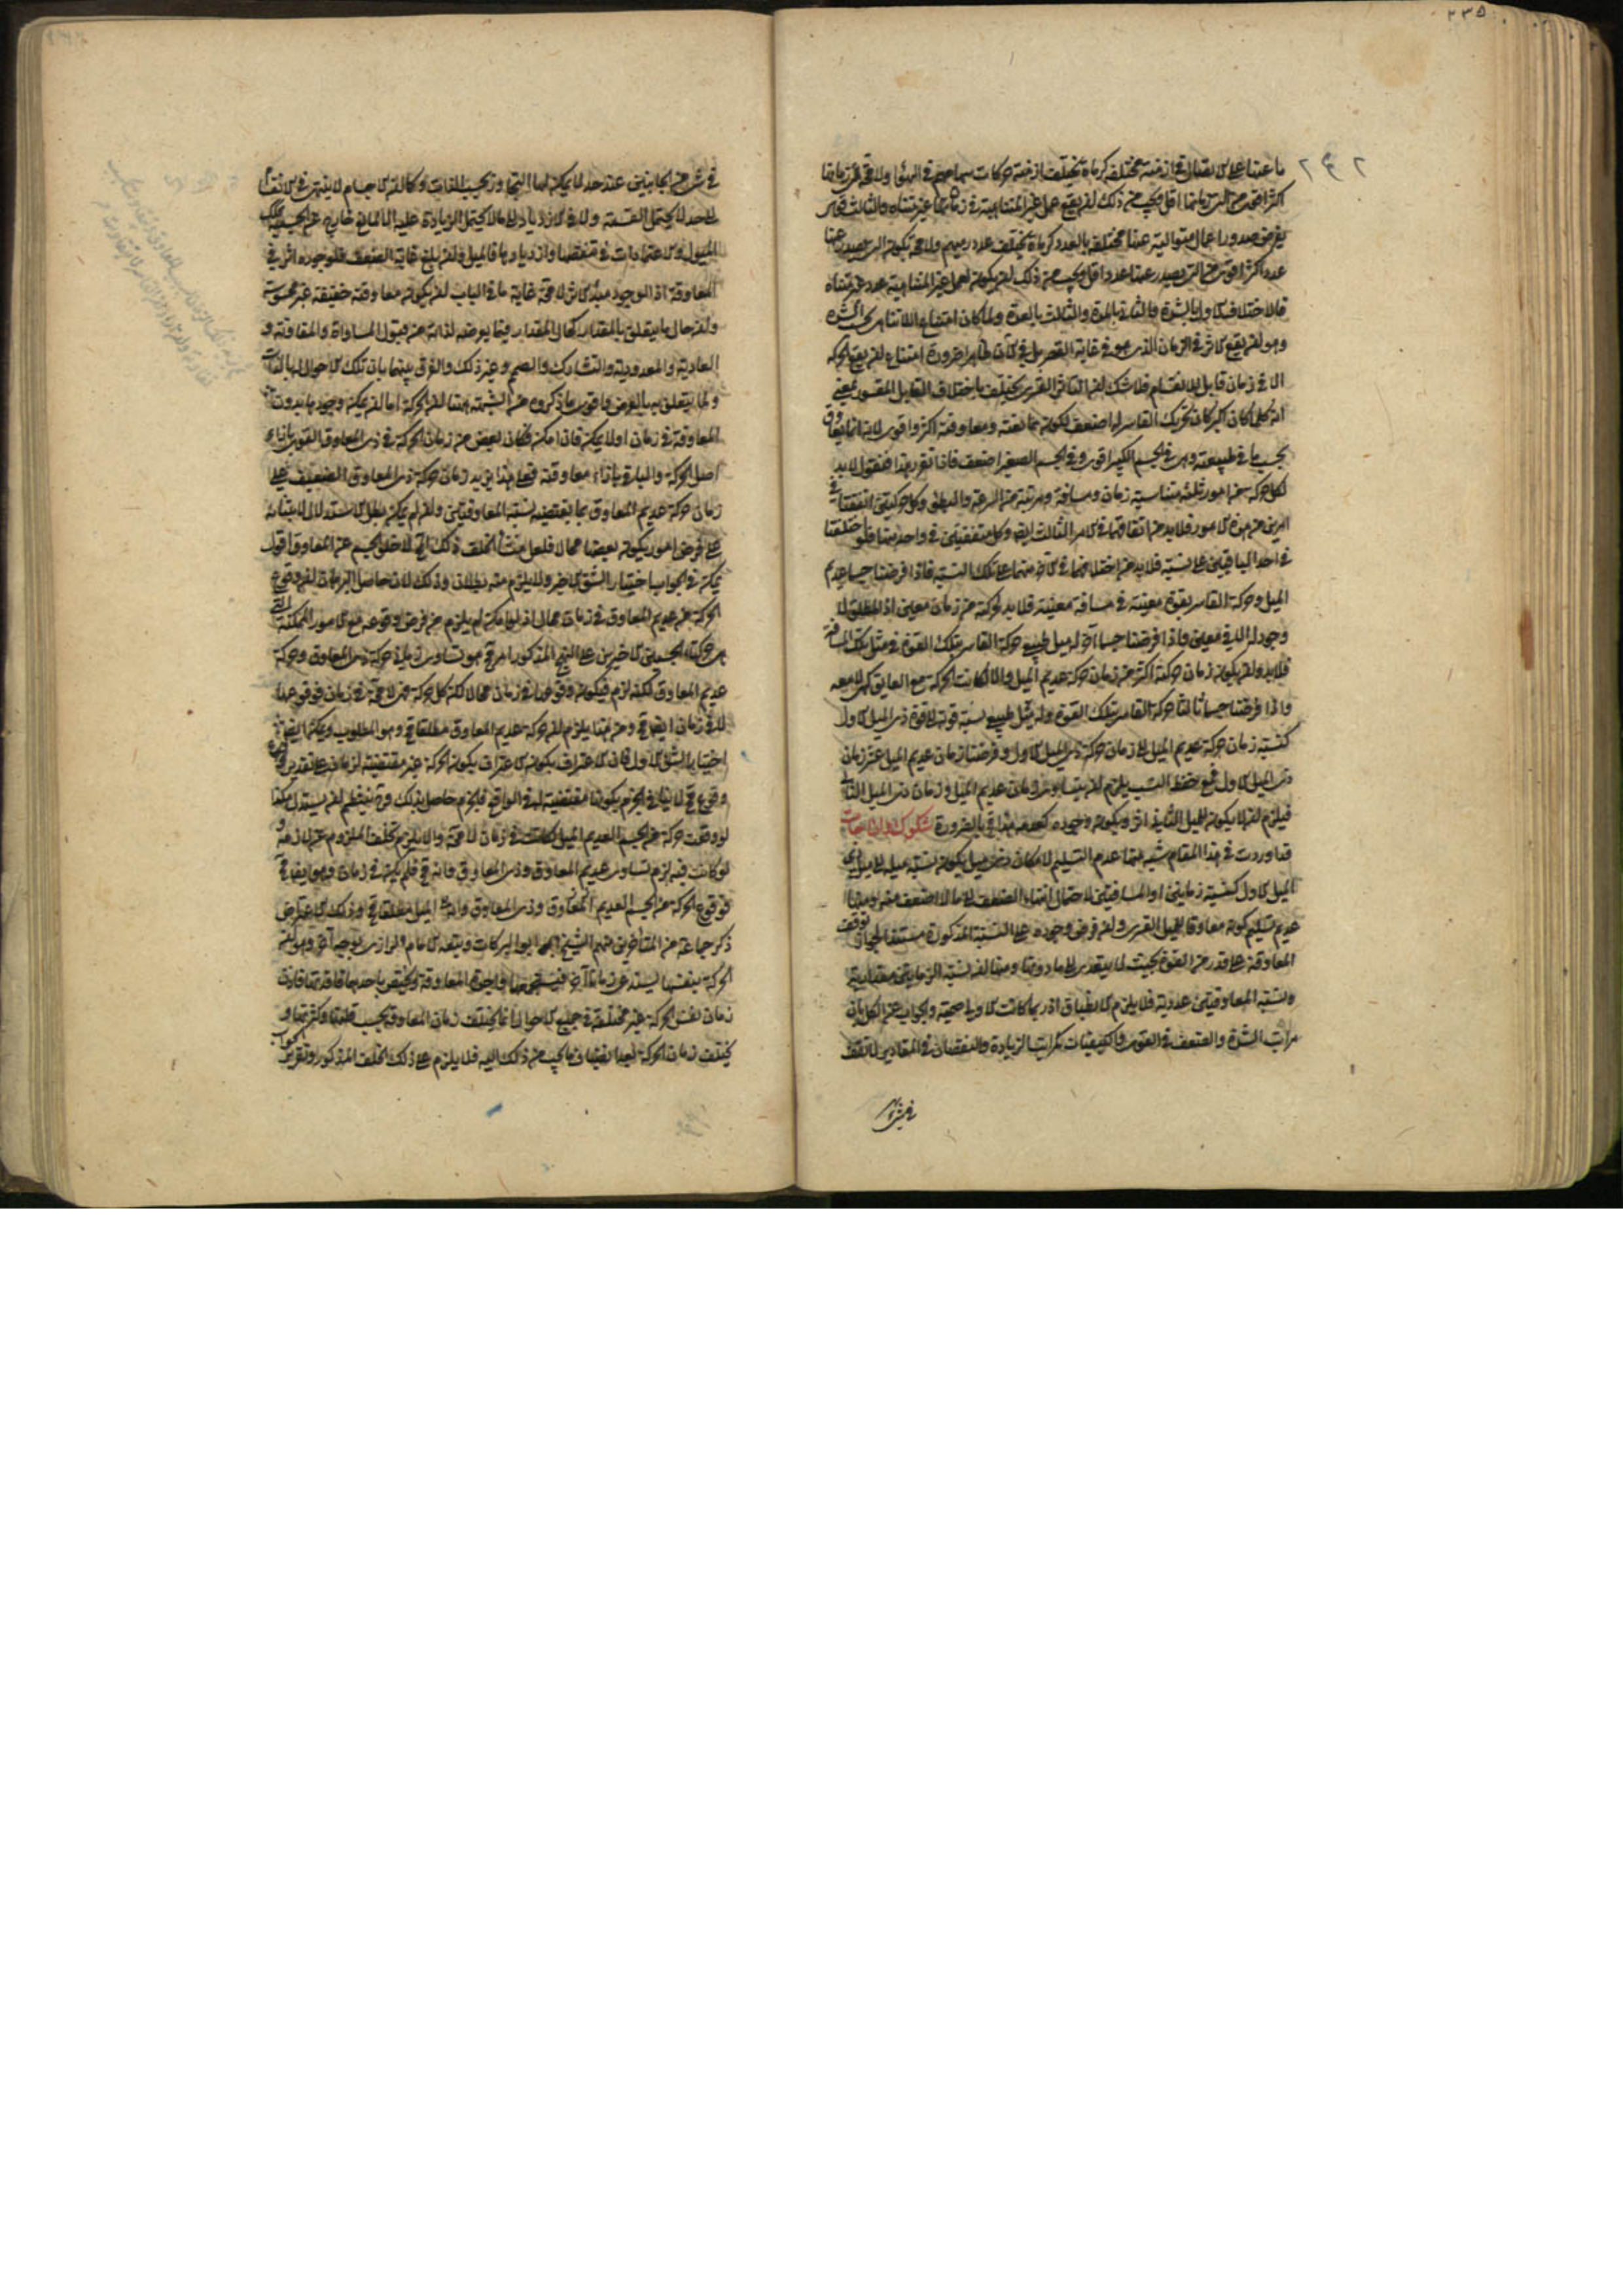 ٢٣٥
٢٤٢
ما عنها على الاتصال في ازمنة مختلفة كرماة تختلف ازمنة حركات سهامهم في الهواء ولا محة
اكثر اقوى من التي زمانها اقل ويجب من ذلك ان يقع عمل غير المتناهية في زمان غير متناه والثالث قوى
يفرض صدور اعمال متوالية عنها مختلفة بالعدد كرماة يختلف عدد رميهم ولا محة تكون التي يصدر عنها
عدد اكثر اقوى من التي يصدر عنها عدد اقل ويجب من ذلك ان يكون لعمل غير المتناهية عدد غير متناه
فالاختلاف الاول بالشدة والثاني بالمدة والثالث بالعدة ولما كان امتناع اللاتناهي بحسب الشدة
وهو ان يقع الاثر في الزمان الذي هو في غاية القصر بل في الآن ظاهرا ضرورة امتناع ان يقع الحركة
الا في زمان قابل للانقسام فلا شك ان التاثير القسري يختلف باختلاف القابل المقسور بمعنى
انه كلما كان اكبر كان تحريك القاسر له اضعف لكون ممانعته ومعاوقته اكثر واقوى لانه انما يعاوق
بحسب ما في طبيعته وهي في الجسم الكبير اقوى وفي الجسم الصغير اضعف فاذا تقرر هذا فنقول لا بد
لكل حركة من امور ثلثة متناسبة زمان ومسافة ومرتبة من السرعة والبطؤ وكل حركتين اتفقتا في
امرين من هذه الامور فلا بد من اتفاقهما في الامر الثالث ايضا وكل متفقتين في واحد منها فلو اختلفتا
في احد الباقيين على نسبة فلا بد من اختلافهما في الآخر منهما على تلك النسبة فاذا فرضنا جسما عديم
الميل وحركة القاسر بقوة معينة في مسافة معينة فلا بد لحركته من زمان معين اذ المطلق لا
وجود له الا في معين واذا فرضنا جسما آخر له ميل طبيعي حركة القاسر بتلك القوة في مثل تلك المسافة
فلا بد وان يكون زمان حركته اكثر من زمان حركة عديم الميل والا لكانت الحركة مع العايق كهي لا معه
واذا فرضنا جسما ثالثا حركه القاسر بتلك القوة وله ميل طبيعي نسبة قوته الى قوة ذي الميل الاول
كنسبة زمان حركة عديم الميل الى زمان حركة ذي الميل الاول وفرضنا زمان عديم الميل عشر زمان
ذي الميل الاول فمع حفظ النسب يلزم ان يتساوى زمان عديم الميل وزمان ذي الميل الثاني
فيلزم ان لا يكون للميل الثاني اثر ويكون وجوده كعدمه هذا مح بالضرورة شكوك وازاحات
قد اوردت في هذا المقام شبه منها عدم التسليم لامكان ذي ميل يكون نسبة ميله الى ميل ذي
الميل الاول كنسبة زمانين او المسافتين لاحتمال انتهاء الضعف الى ما لا اضعف منه ومنها
عدم تسليم كونه معاوقا للميل القسري وان فرض وجوده على النسبة المذكورة مستندا لجواز توقف
المعاوقة على قدر من القوة بحيث لا يتعدى الى ما دونها ومنها ان نسبة الزمانين مقدارية
ونسبة المعاوقتين عددية فلا يلزم الانطباق اذ ربما كانت الاولى صمية والجواب عن الكل بان
مراتب الشدة والضعف في القوى والكيفيات كمراتب الزيادة والنقصان في المقادير لا تقف
في شئ من الجانبين عند حد لا يمكن لها التجاوز بحسب الذات وكما ان الاجسام لا ينتهي في الانتقاص
الى حد لا يحتمل القسمة ولا في الازدياد الى ما لا يحتمل الزيادة عليه الا لمانع خارج عن الجسمية فكذلك
الميول والاعتمادات في تنقصها وازديادها فالميل وان بلغ غاية الضعف فلوجوده اثر في
المعاوقة اذ الوجود مبدأ الاثر لا محة غاية ما في الباب ان يكون معاوقة خفيفة غير محسوسة
وان حال ما يتعلق بالمقدار كحال المقدار فيما يعرضه لذاته من قبول المساواة والمفاوتة و
العادية والمعدودية والتشارك والصمم وغير ذلك والفرق بينهما بان تلك الاحوال لها بالذات
ولما يتعلق بها بالعرض واقوى ما ذكروه من الشبهة هنا ان الحركة اما ان يمكن وجودها بدون
المعاوقة في زمان او لا يمكن فان امكن فكان بعض من زمان الحركة في ذي المعاوق القوي بازاء
اصل الحركة والباقي بازاء معاوقته فعلى هذا يزيد زمان حركة ذي المعاوق الضعيف على
زمان حركة عديم المعاوق بما يقتضيه نسبة المعاوقتين وان لم يمكن بطل الاستدلال لابتنائه
على فرض امور يكون بعضها محالا فلعل منشأ الخلف ذلك المح لا خلو الجسم عن المعاوق اقول
يمكن في الجواب اختيار الشق الاخير ولا يلزم منه بطلان وذلك لان حاصل البرهان ان وقوع
الحركة من عديم المعاوق في زمان محال اذ لو امكن لم يلزم من فرض وقوعه مع الامور الممكنة التي
هي حركتا الجسمين الاخيرين على النهج المذكور امر مح هو تساوي زماني حركة ذي المعاوق وحركة
عديم المعاوق لكنه لزم فيكون وقوعها في زمان محالا لكن كل حركة فهي لا محة في زمان فوقوعها
لا في زمان ايضا مح ومن هذا يلزم ان حركة عديم المعاوق مطلقا مح وهو المطلوب ويمكن ايضا
اختيار الشق الاول فان الاعتراف بكون الاعتراف بكون الحركة غير مقتضية لزمان على تقدير
وقوع مح لا ينافي الجزم بكونها مقتضية له في الواقع فالجزم حاصل بذلك وح ينتظم ان يستدل هكذا
لو وقعت حركة من الجسم العديم الميل لكانت في زمان لا محة والا يلزم تخلف الملزوم عن لازمه
لو كانت فيه لزم تساوي عديم المعاوق وذي المعاوق وانه مح فلم يكن في زمان وهو ايضا مح
فوقوع الحركة من الجسم العديم الميل مطلقا مح وذلك الاعتراض
ذكر جماعة من المتأخرين منهم الشيخ ابو البركات وتبعه الامام الرازي بوجه آخر وهو ان
الحركة بنفسها يستدعي زمانا
زمان نفس الحركة غير مختلفة في جميع الاحوال انما يختلف زمان المعاوقة بحسب قلتها وكثرتها و
يختلف زمان الحركة بعد انضياف ما يجب من ذلك اليه فلا يلزم على ذلك الخلف المذكور وتقرير الجواب